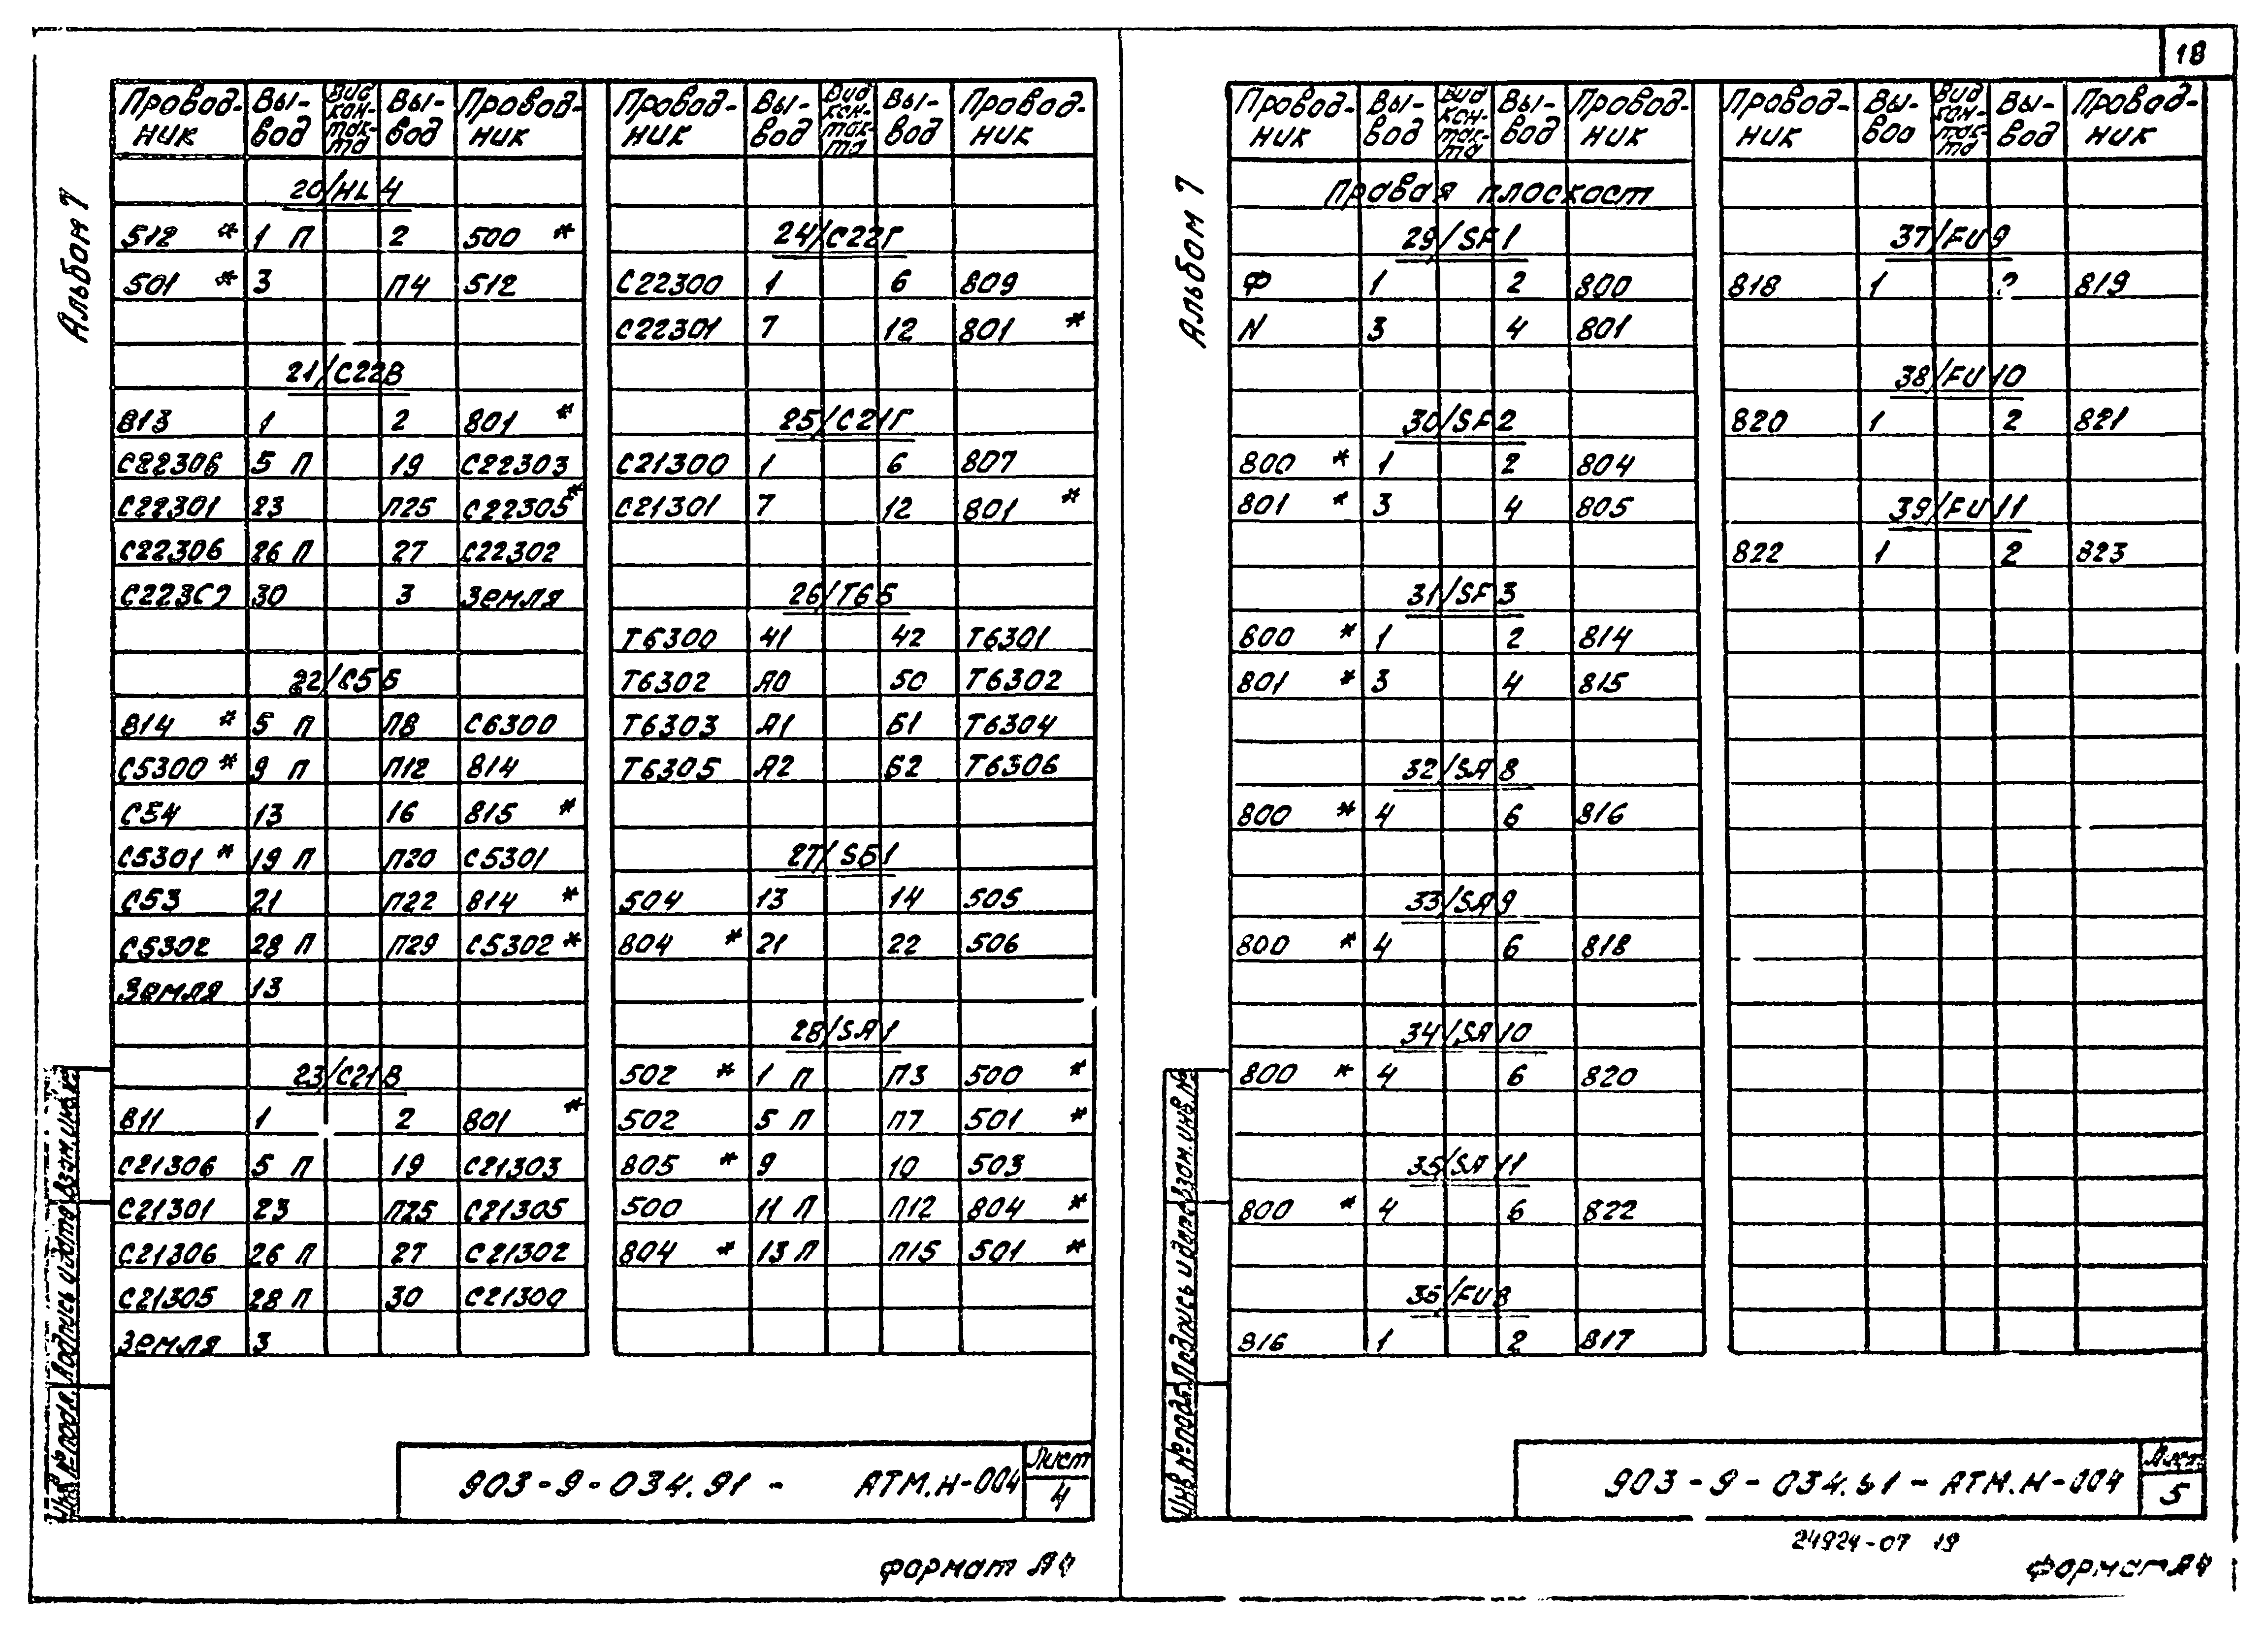 18
Альбом 7
Провод-ник Вы-вод Вид кон-так-та Вы-вод Провод-ник
20/HL4
512 * 1 П 2 500 *
501 * 3 П4 512
21/С22В
813 1 2 801 *
С22306 5 П 19 С22303
С22301 23 П25 С22305 *
С22306 26 П 27 С22302
30 3 Земля
22/С5Б
814 * 5 П П8 С6300
С5300 * 9 П П12 814
С54 13 16 815 *
С5301 * 19 П П20 С5301
С53 21 П22 814 *
С5302 28 П П29 С5302 *
Земля 13
23/С21В
811 1 2 801 *
С21306 5 П 19 С21303
С21301 23 П25 С21305
С21306 26 П 27 С21302
С21305 28 П 30 С21300
Земля 3
Провод-ник Вы-вод Вид кон-так-та Вы-вод Провод-ник
24/С22Г
С22300 1 6 809
С22301 7 12 801 *
25/С21Г
С21300 1 6 807
С21301 7 12 801 *
26/Т6Б
Т6300 41 42 Т6301
Т6302 А0 Б0 Т6302
Т6303 А1 Б1 Т6304
Т6305 А2 Б2 Т6306
27/SБ1
504 13 14 505
804 * 21 22 506
28/SA1
502 * 1 П П3 500 *
502 5 П П7 501 *
805 * 9 10 503
500 11 П П12 804 *
804 * 13 П П15 501 *
Инв.№ подл. Подпись и дата Взам.инв.№
903-9-034.91 - АТМ.Н-004
Лист
4
Формат А4
Альбом 7
Провод-ник Вы-вод Вид кон-так-та Вы-вод Провод-ник
Правая плоскост
29/SF1
Ф 1 2 800
N 3 4 801
30/SF2
800 * 1 2 804
801 * 3 4 805
31/SF3
800 * 1 2 814
801 * 3 4 815
32/SA8
800 * 4 6 816
33/SA9
800 * 4 6 818
34/SA10
800 * 4 6 820
35/SA11
800 * 4 6 822
36/FU8
816 1 2 817
Провод-ник Вы-вод Вид кон-так-та Вы-вод Провод-ник
37/FU9
818 1 2 819
38/FU10
820 1 2 821
39/FU11
822 1 2 823
Инв.№ подл. Подпись и дата Взам.инв.№
903-9-034.91 - АТМ.Н-004
Лист
5
24924-07 19
Формат А4